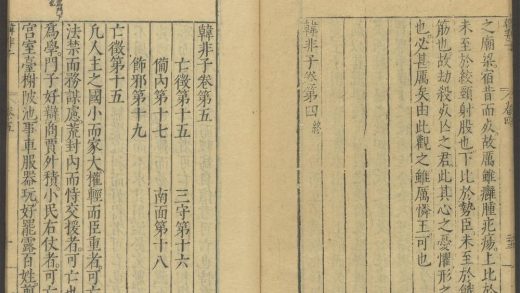 卷四
之廟梁宿昔而死故厲雖癰腫疕瘍上比於
未至於絞頸射股也下比於勢臣未至於餓
筋也故劫殺死亡之君此其心之憂懼形之
也必甚厲矣由此觀之雖厲憐王可也
韓非子卷第四 終
韓非子卷第五
亡徵第十五 三守第十六
備內第十七 南面第十八
飾邪第十九
亡徵第十五
凡人主之國小而家大權輕而臣重者可亡
法禁而務謀慮荒封內而恃交援者可亡也
爲學門子好辯商賈外積小民右仗者可亡
宮室臺榭陂池事車服器玩好罷露百姓煎
韓非子 卷五